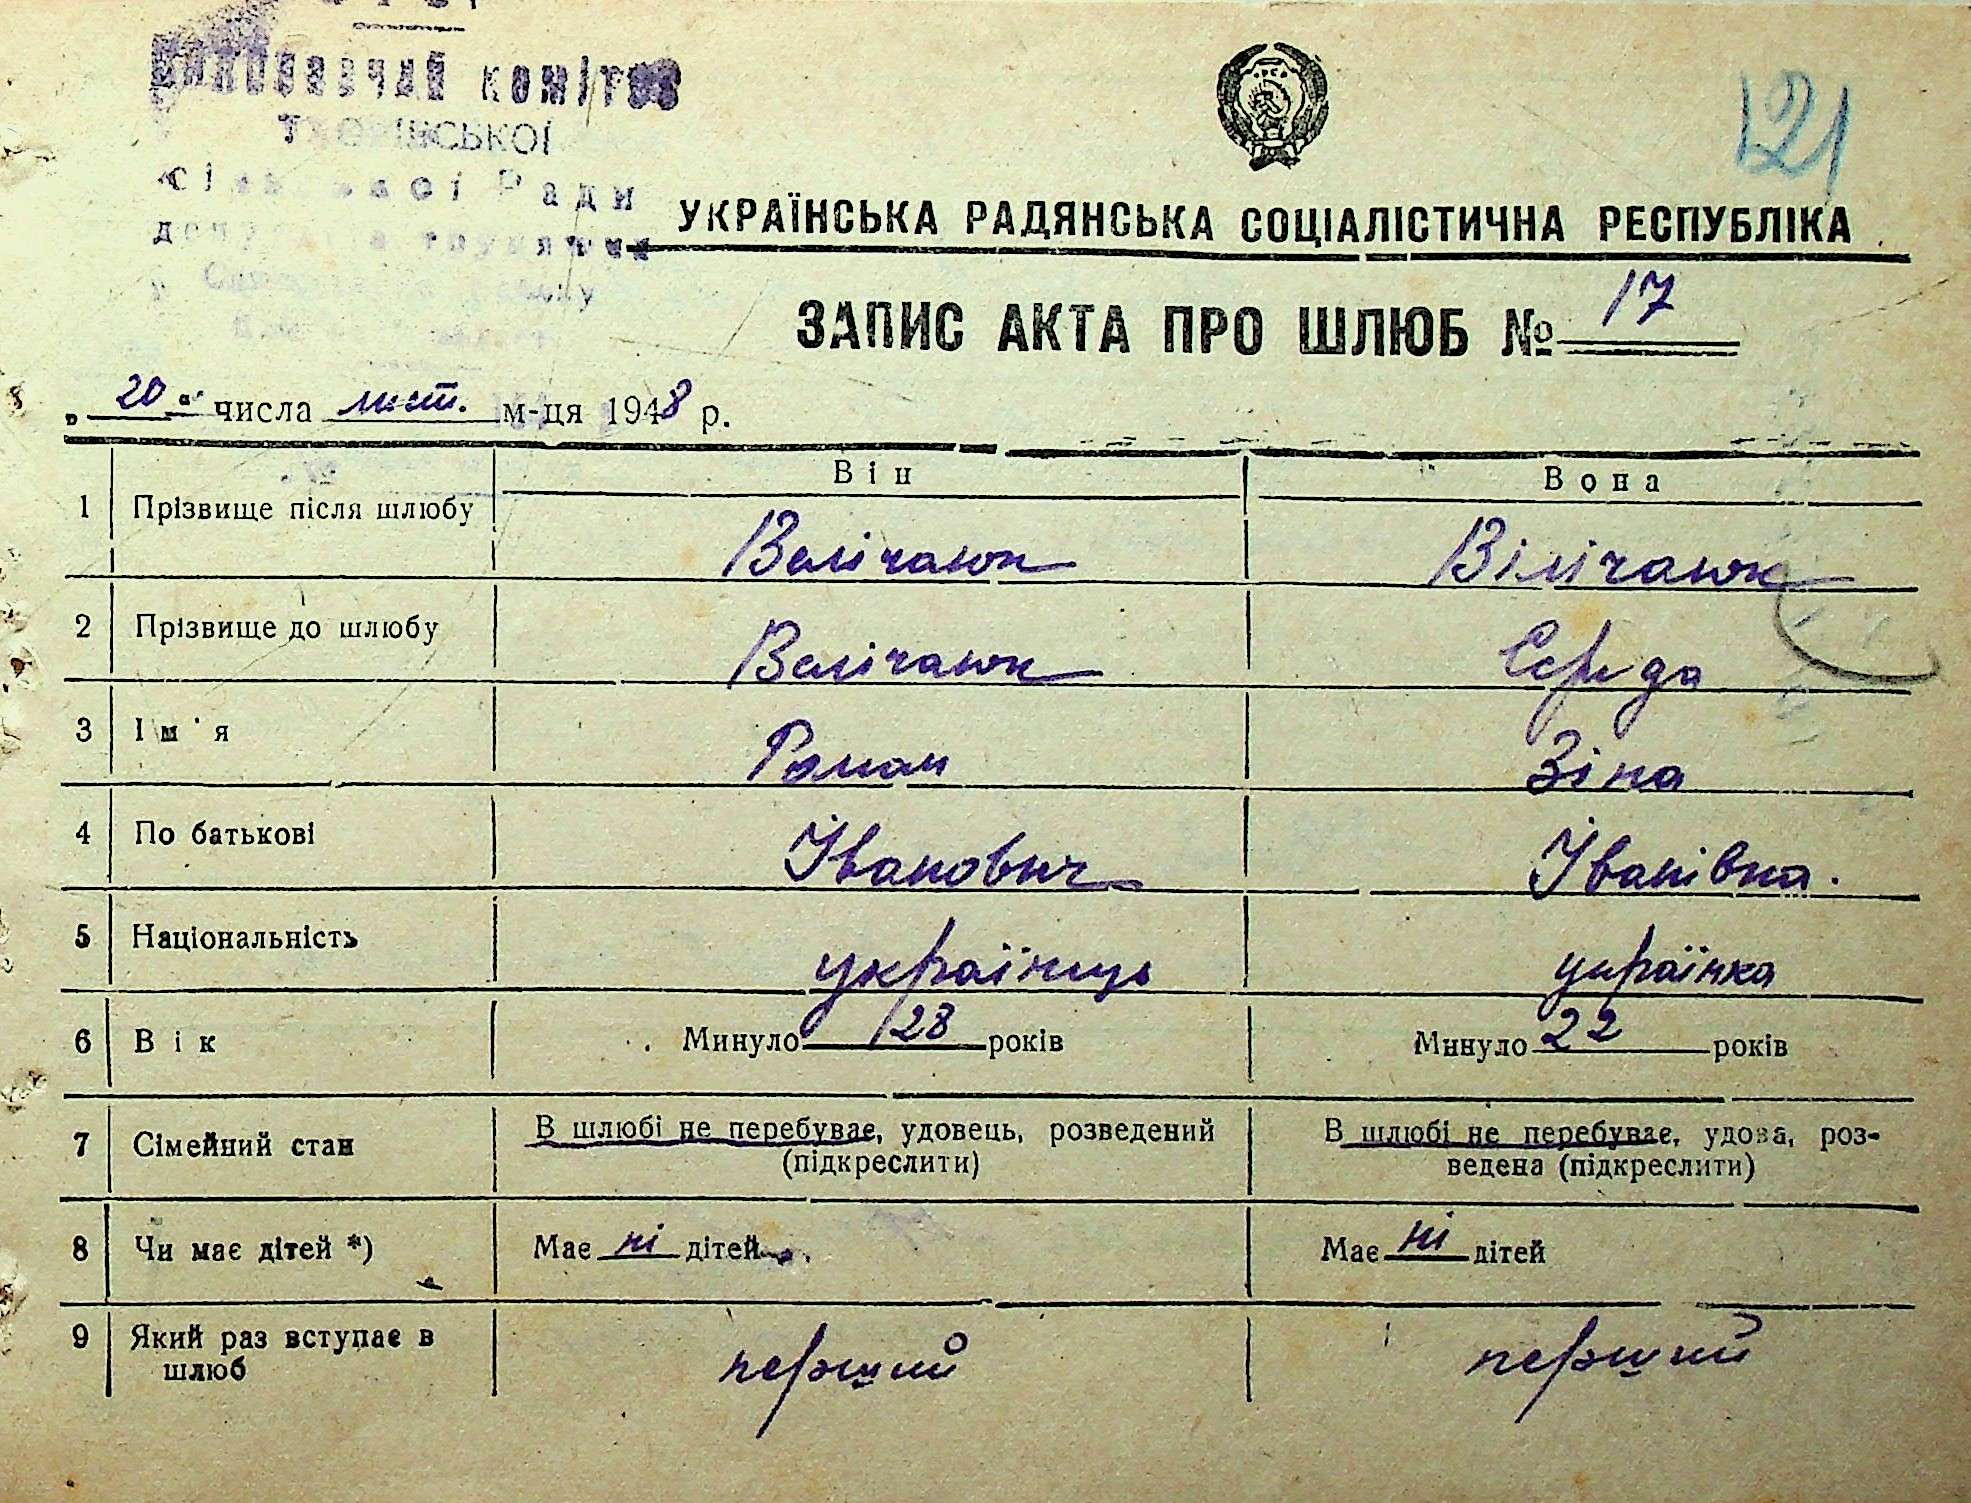 УРСР
ВИКОНАВЧИЙ КОМІТЕТ
Ради
121
УКРАЇНСЬКА РАДЯНСЬКА СОЦІАЛІСТИЧНА РЕСПУБЛІКА
ЗАПИС АКТА ПРО ШЛЮБ № 17
„20“ числа лист. м-ця 1948 р.
Він Вона
1 Прізвище після шлюбу Велічанюк Вілічанюк
2 Прізвище до шлюбу Велічанюк Середа
3 Ім'я Роман Зіна
4 По батькові Іванович Іванівна.
5 Національність українець українка
6 Вік Минуло 28 років Минуло 22 років
7 Сімейний стан В шлюбі не перебуває, удовець, розведений В шлюбі не перебуває, удова, роз-
(підкреслити) ведена (підкреслити)
8 Чи має дітей *) Має ні дітей Має ні дітей
9 Який раз вступає в
шлюб перший перший